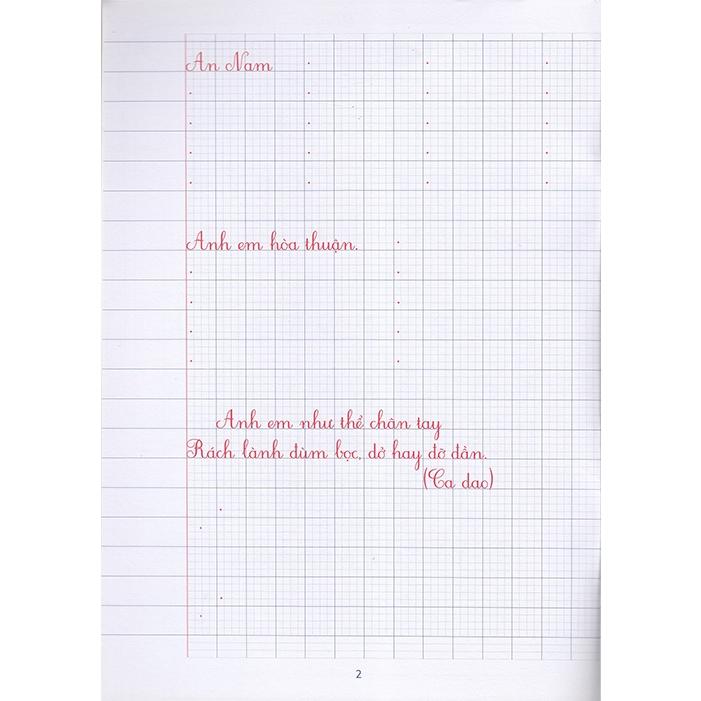 An Nam
Anh em hòa thuận.
Anh em như thể chân tay
Rách lành đùm bọc, dở hay đỡ đần.
(Ca dao)
2